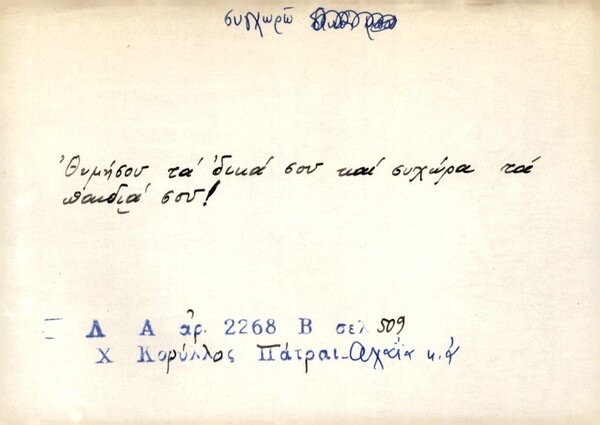 συγχωρῶ
Θυμήσου τά δικά σου καί συχώρα τά
παιδιά σου!
Λ Α ἀρ. 2268 Β σελ 509
Χ Κορύλλος Πάτραι-Ἀχαΐα κ.ἀ